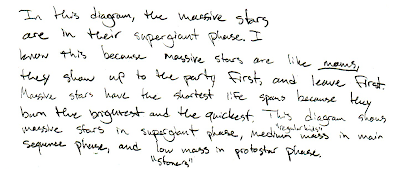 In this diagram, the massive stars
are in their supergiant phase. I
know this because massive stars are like moms,
they show up to the party first, and leave first.
Massive stars have the shortest life spans because they
burn the brightest and the quickest. This diagram shows
massive stars in supergiant phase, medium mass in main
"regular kids"
sequence phase, and low mass in protostar phase.
"stoners"